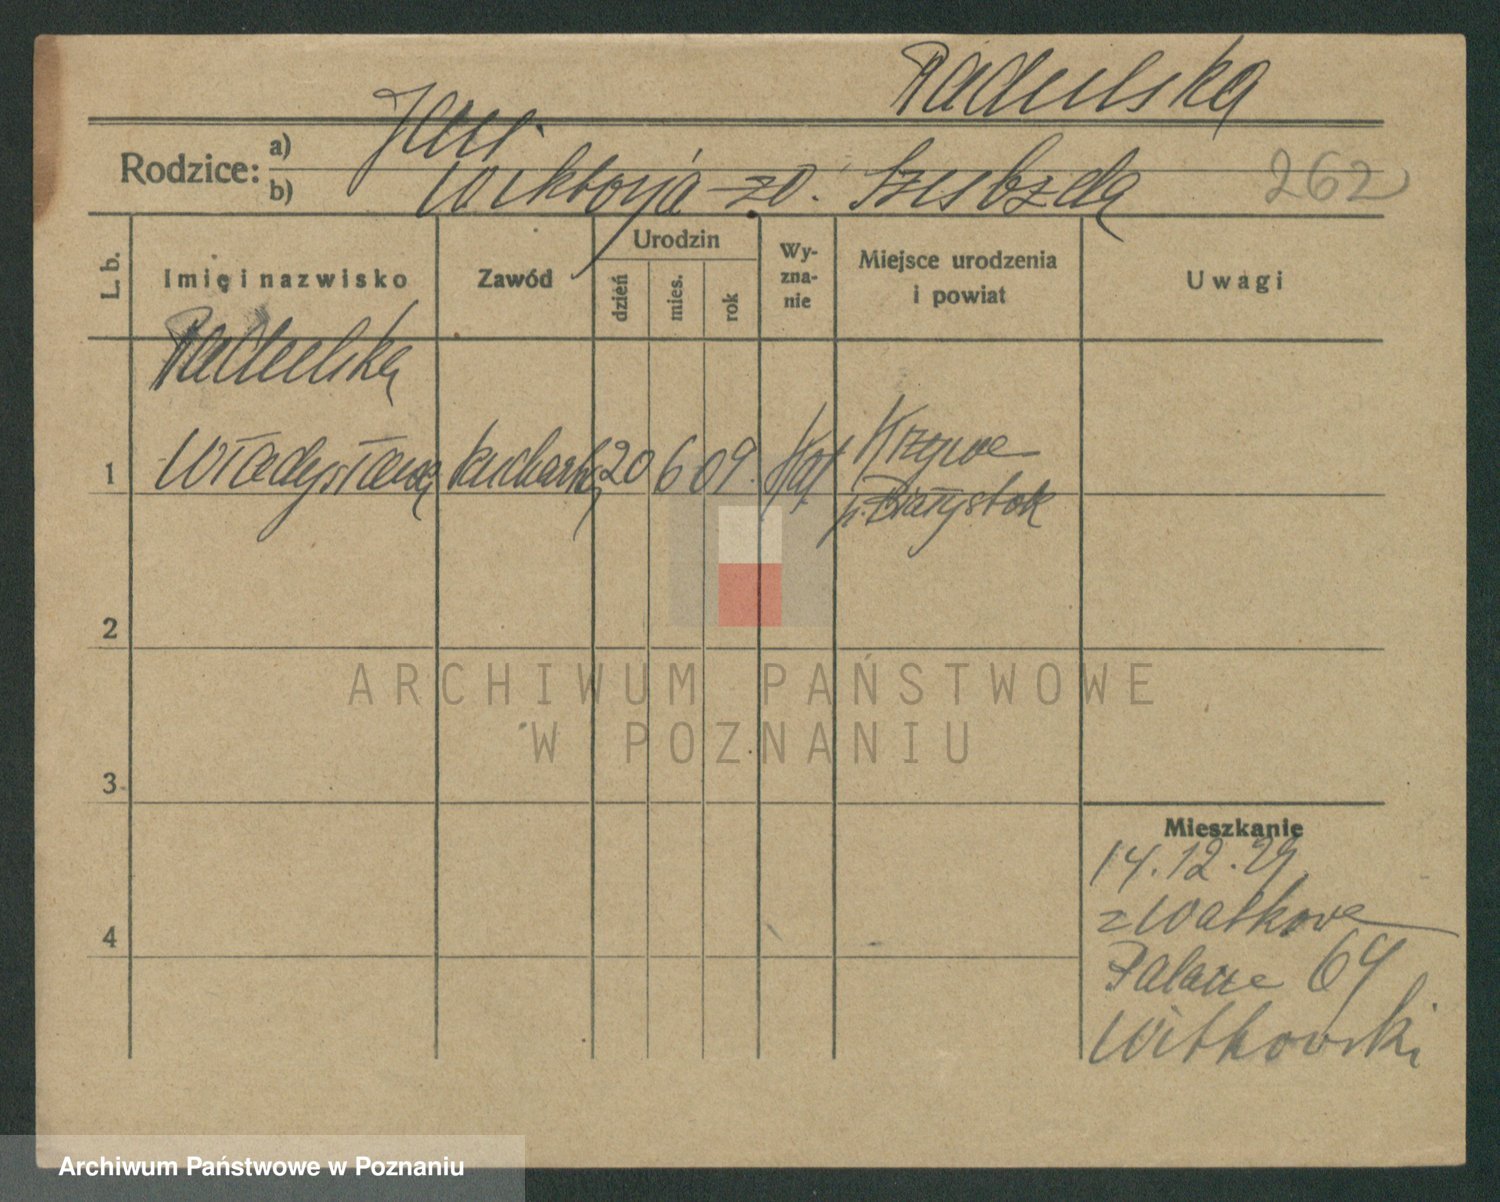 Radulska
Rodzice: a) Jan
b) Wiktorja zd. Szubzda
262
L. b.
Imię i nazwisko
Zawód
Urodzin
dzień
mies.
rok
Wy-
zna-
nie
Miejsce urodzenia
i powiat
Uwagi
Radulska
1 Władysława kucharka 20 6 09. kat Krzywe
p. Białystok
2
3
4
Mieszkanie
14.12.29
z Witkowa
64
Witkowski
ARCHIWUM PAŃSTWOWE
W POZNANIU
Archiwum Państwowe w Poznaniu